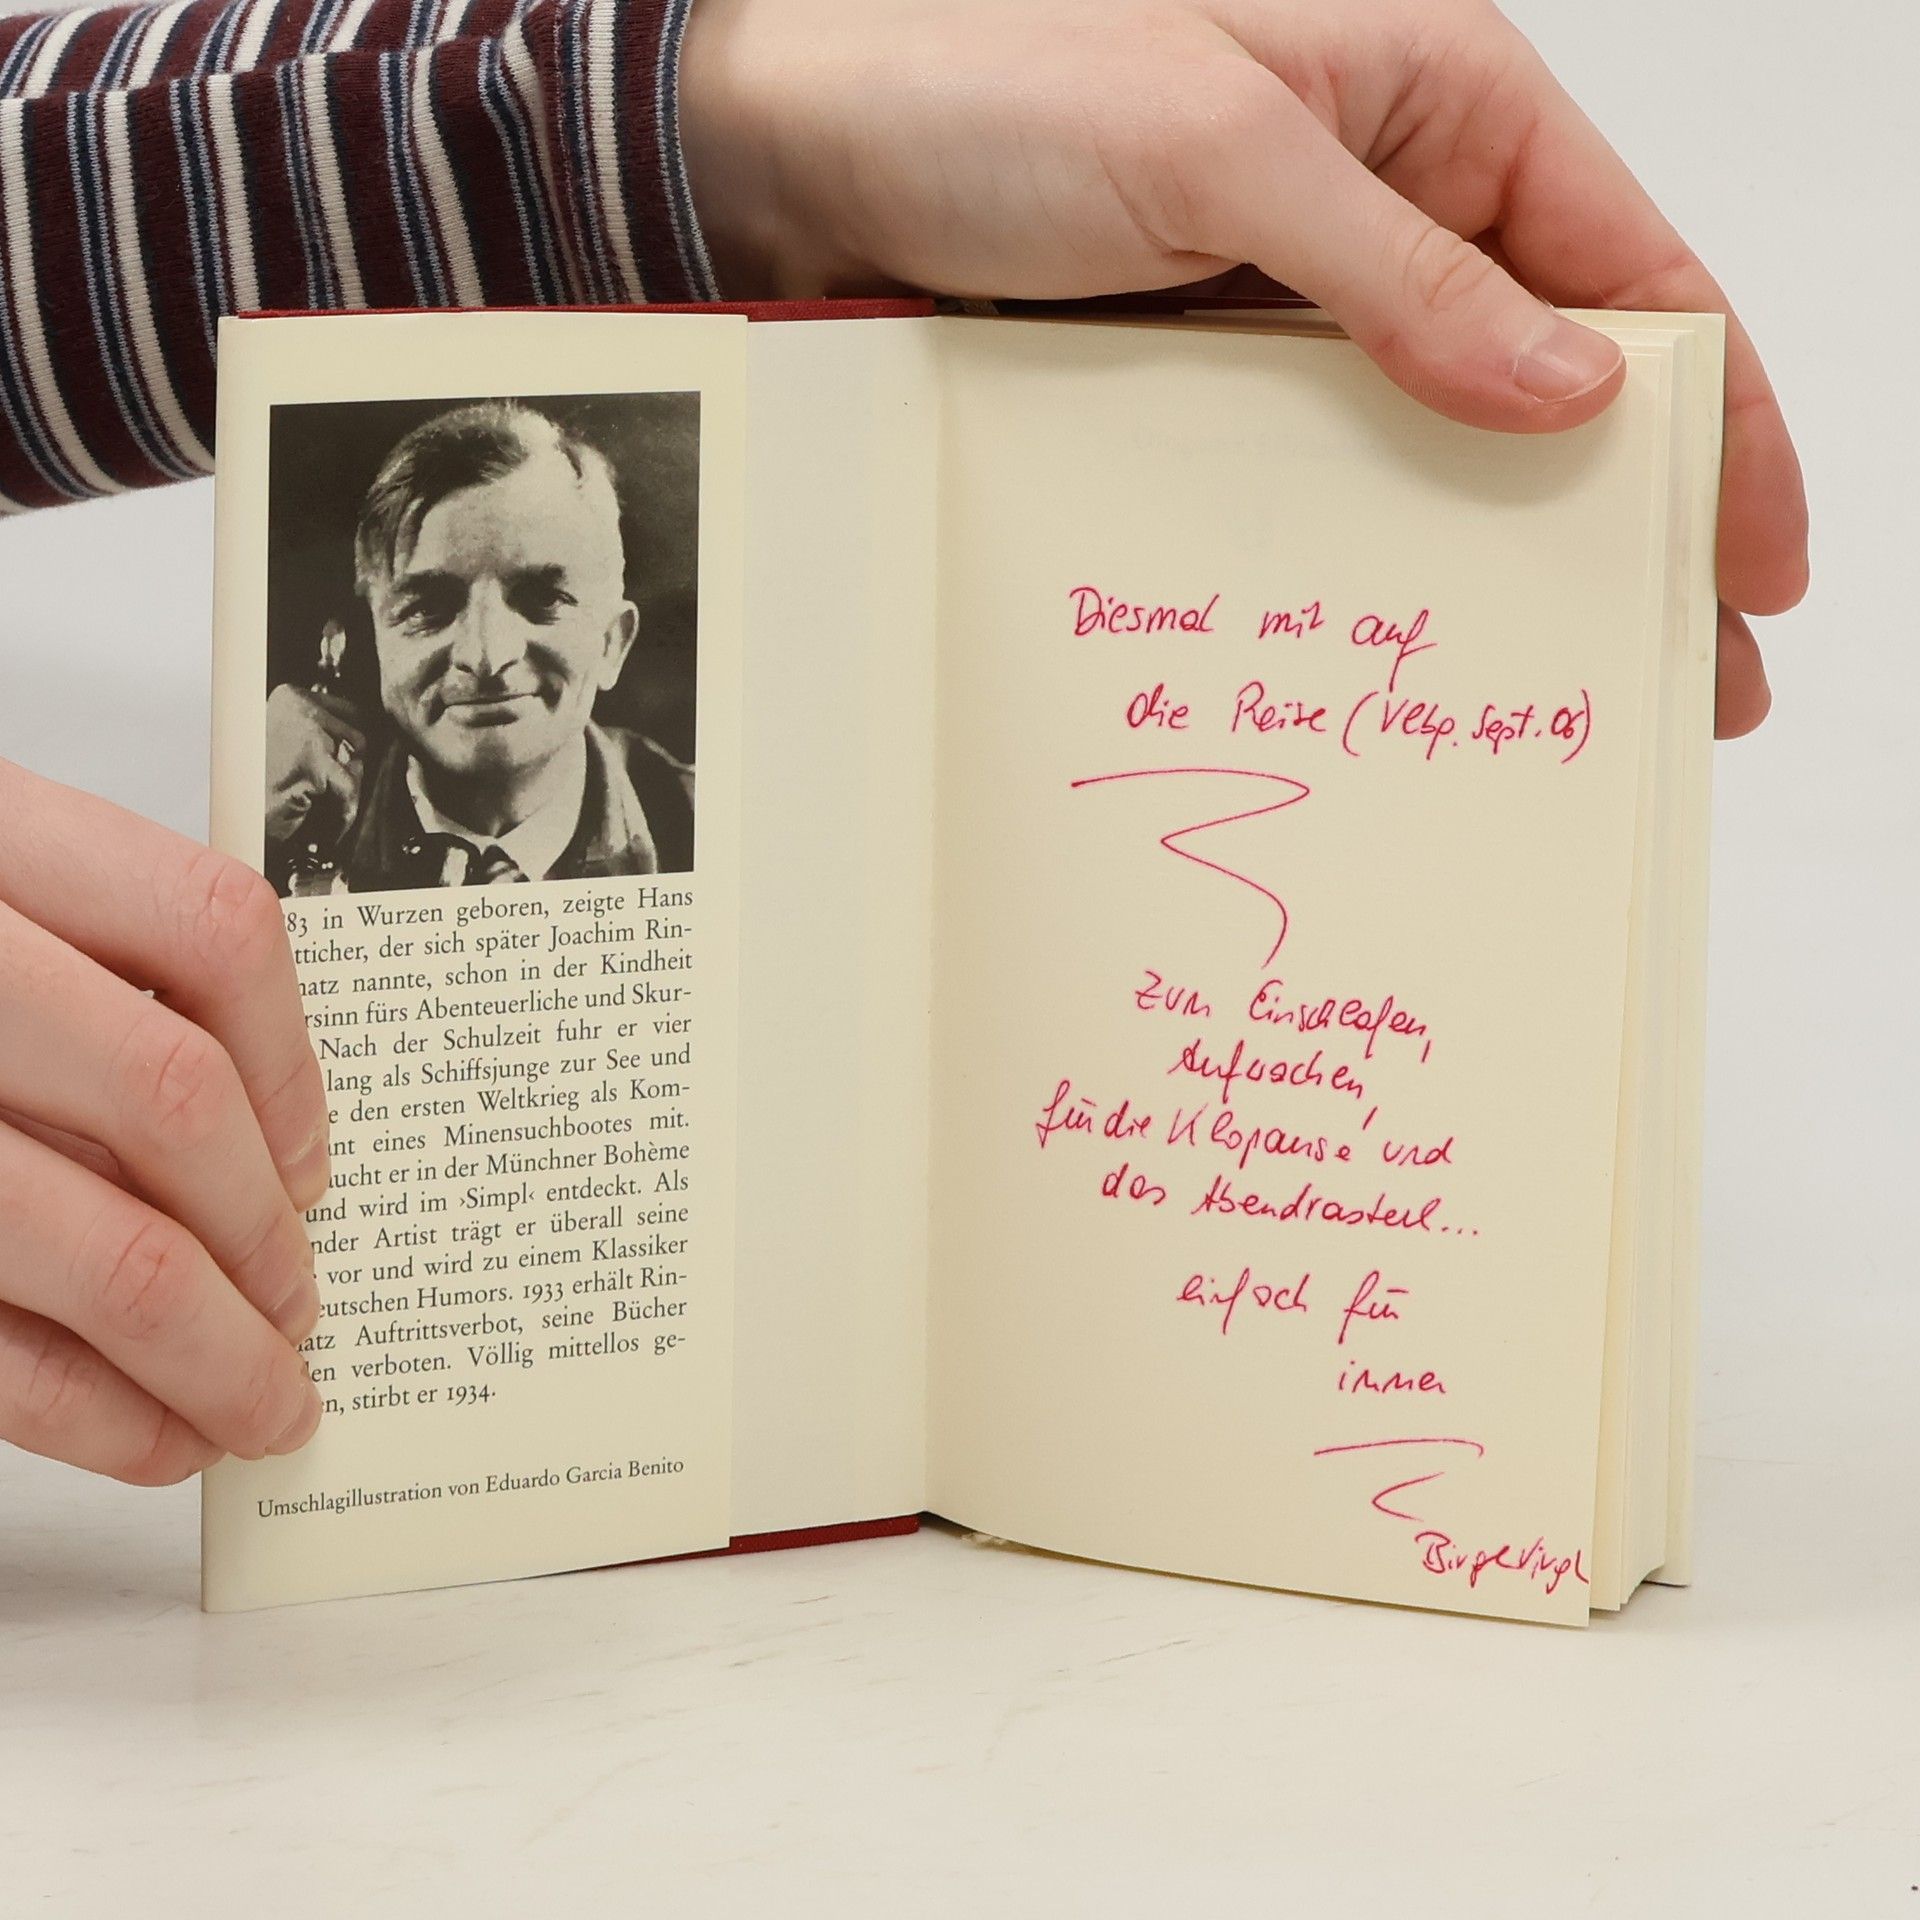 83 in Wurzen geboren, zeigte Hans
tticher, der sich später Joachim Rin-
natz nannte, schon in der Kindheit
rsinn fürs Abenteuerliche und Skur-
Nach der Schulzeit fuhr er vier
lang als Schiffsjunge zur See und
e den ersten Weltkrieg als Kom-
nt eines Minensuchbootes mit.
ucht er in der Münchner Bohème
und wird im ›Simpl‹ entdeckt. Als
nder Artist trägt er überall seine
vor und wird zu einem Klassiker
eutschen Humors. 1933 erhält Rin-
atz Auftrittsverbot, seine Bücher
en verboten. Völlig mittellos ge-
en, stirbt er 1934.
Umschlagillustration von Eduardo Garcia Benito
Diesmal mit auf
die Reise ( Sept. 06)
zum Einschlafen,
Aufwachen,
für die Klopause und
das Abendrasterl...
einfach für
immer